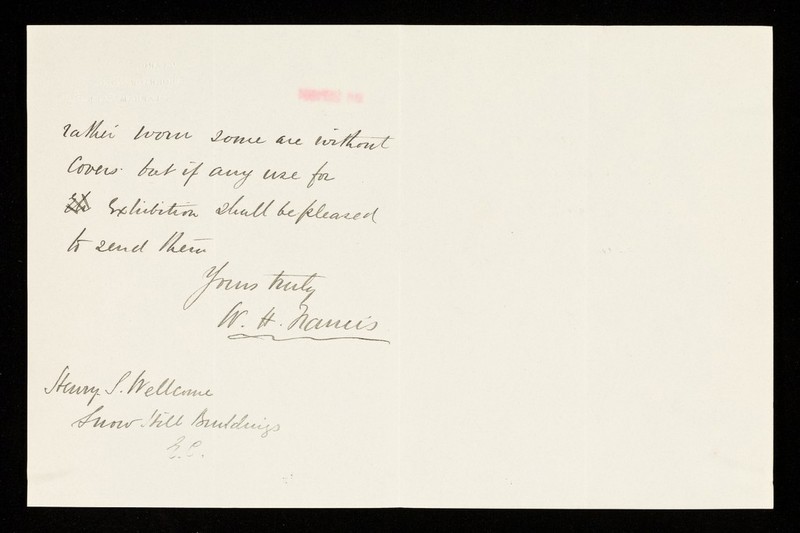 rather worn some are without
Covers. but if any use for
Ex Exhibition shall be pleased
to send them
Yours truly
W. H. Francis
Henry S. Wellcome
Snow Hill Buildings
E.C.